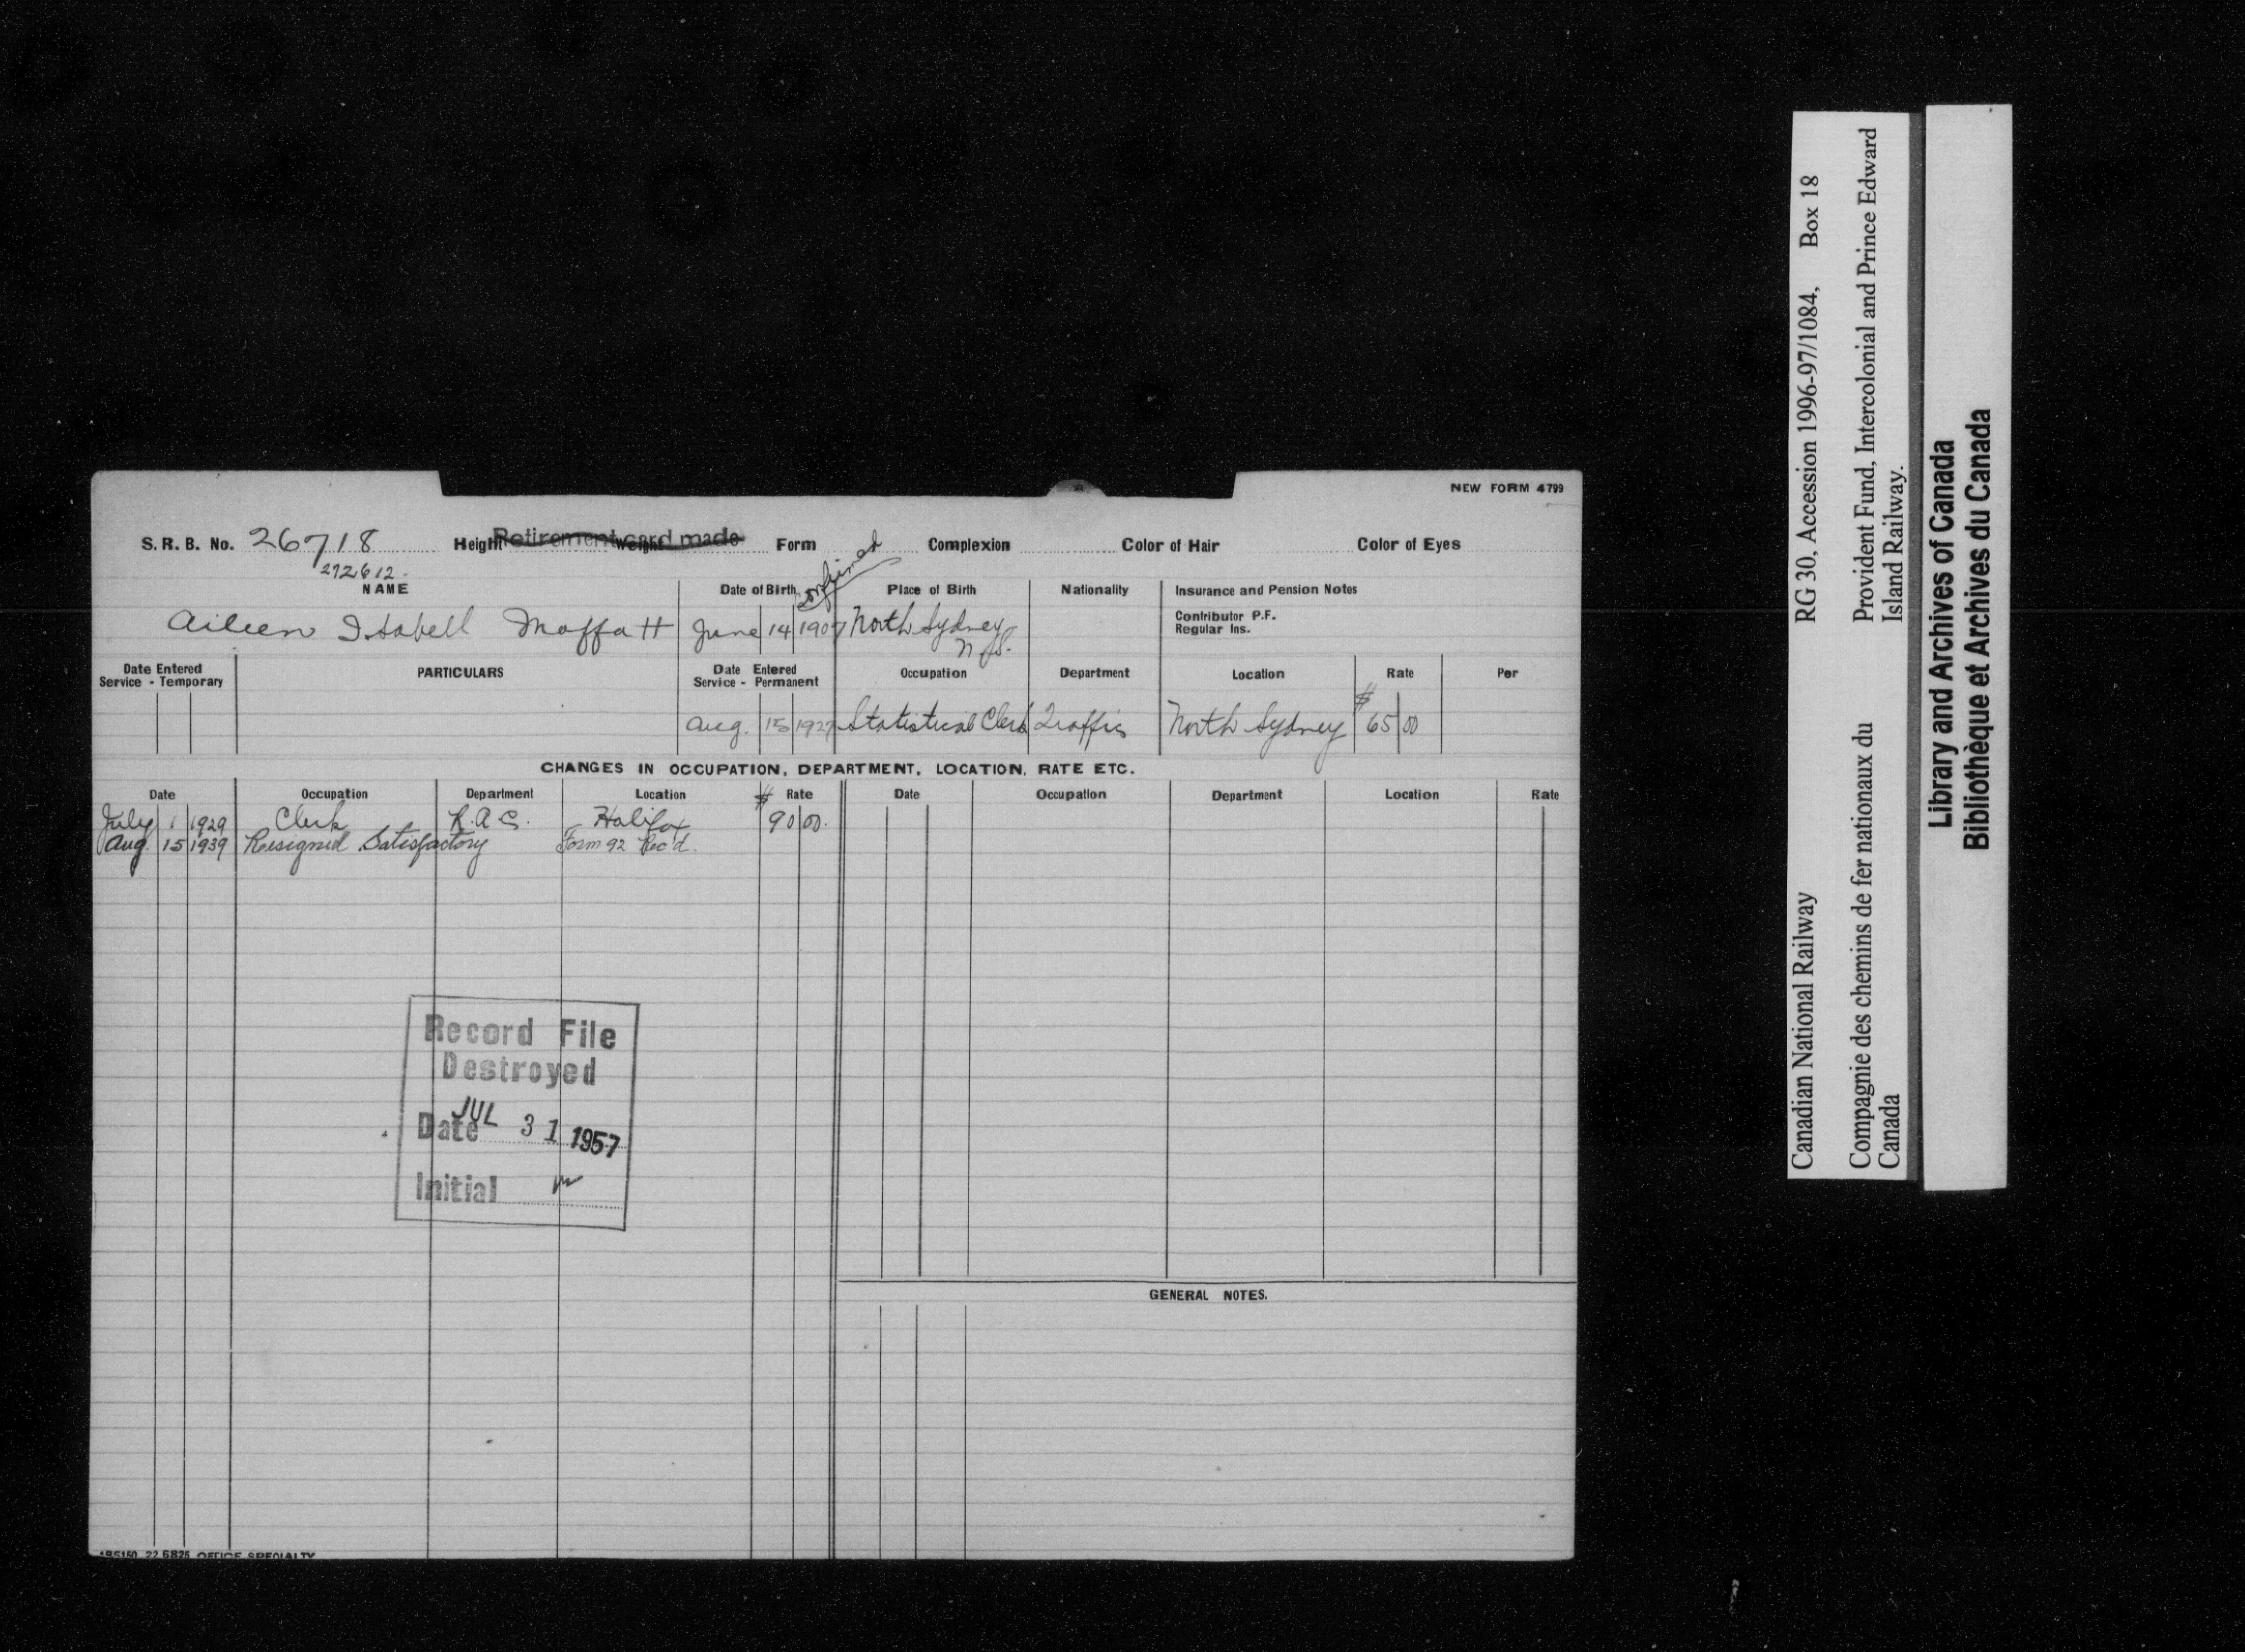 NEW FORM 4799
S. R. B. No. 26718 Height Retirement card made Weight Form Complexion Color of Hair Color of Eyes
272612
NAME Date of Birth confirmed Place of Birth Nationality Insurance and Pension Notes
Contributor P.F.
Regular Ins.
Aileen Isabell Moffatt June 14 1907 North Sydney
N.S.
Date Entered Service - Temporary PARTICULARS Date Entered Service - Permanent Occupation Department Location Rate Per
Aug. 15 1927 Statistical Clerk Traffic North Sydney $ 65 00
CHANGES IN OCCUPATION, DEPARTMENT, LOCATION, RATE ETC.
Date Occupation Department Location $ Rate Date Occupation Department Location Rate
July 1 1929 Clerk R.A.C. Halifax 90 00.
Aug. 15 1939 Resigned Satisfactory Form 92 Rec'd.
Record File
Destroyed
Date JUL 31 1957
Initial
GENERAL NOTES.
OFFICE SPECIALTY
Canadian National Railway RG 30, Accession 1996-97/1084, Box 18
Compagnie des chemins de fer nationaux du Provident Fund, Intercolonial and Prince Edward
Canada Island Railway.
Library and Archives of Canada
Bibliothèque et Archives du Canada